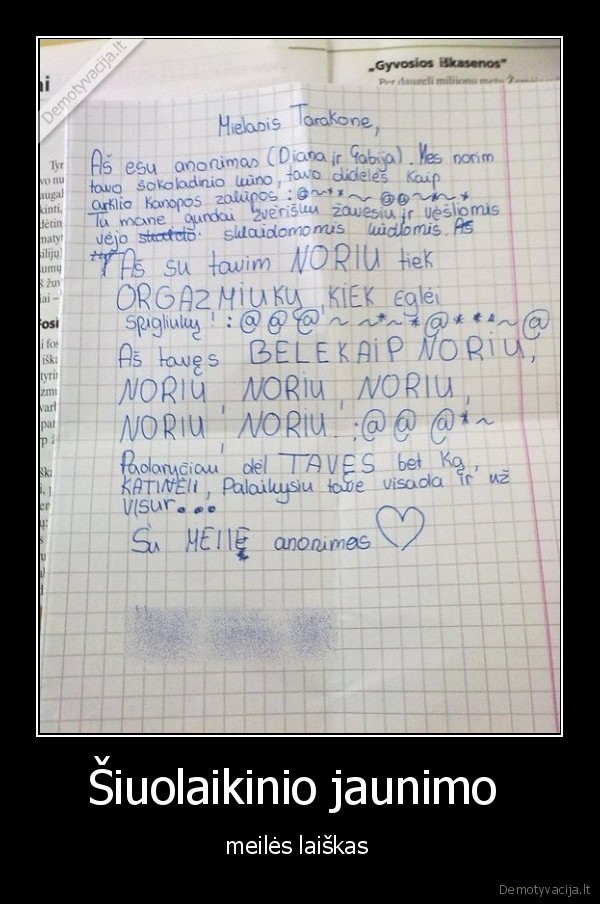 Demotyvacija.lt
„Gyvosios iškasenos“
Per daugelį milijonų metų
Mielasis Tarakone,
Aš esu anonimas (Diana ir Gabija). Mes norim
tavo šokoladinio kūno, tavo didelės kaip
arklio kanopos zalūpos :@~**~ @@~*~*
Tu mane gundai žvėrišku žavesiu ir vešliomis
vėjo sklaidomomis kudlomis. Aš
Aš su tavim NORIU tiek
ORGAZMIUKŲ, KIEK Eglėi
spigliukų! :@@@~~*~*@***~@
Aš tavęs BELEKAIP NORIU,
NORIU, NORIU, NORIU,
NORIU, NORIU. :@@ @*~
Padaryčiau dėl TAVĘS bet ką,
KATINĖLI, Palaikysiu tave visada ir už
visur...
Su MEIIE anonimas ♡
Šiuolaikinio jaunimo
meilės laiškas
Demotyvacija.lt